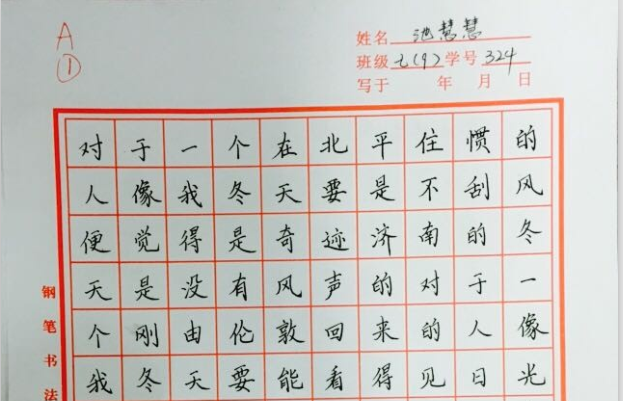 A
①
姓名 池慧慧
班级 七(9) 学号 324
写于 年 月 日
对于一个在北平住惯的
人像我冬天要是不刮风
便觉得是奇迹济南的冬
天是没有风声的对于一
个刚由伦敦回来的人像
我冬天要能看得见日光
钢笔书法